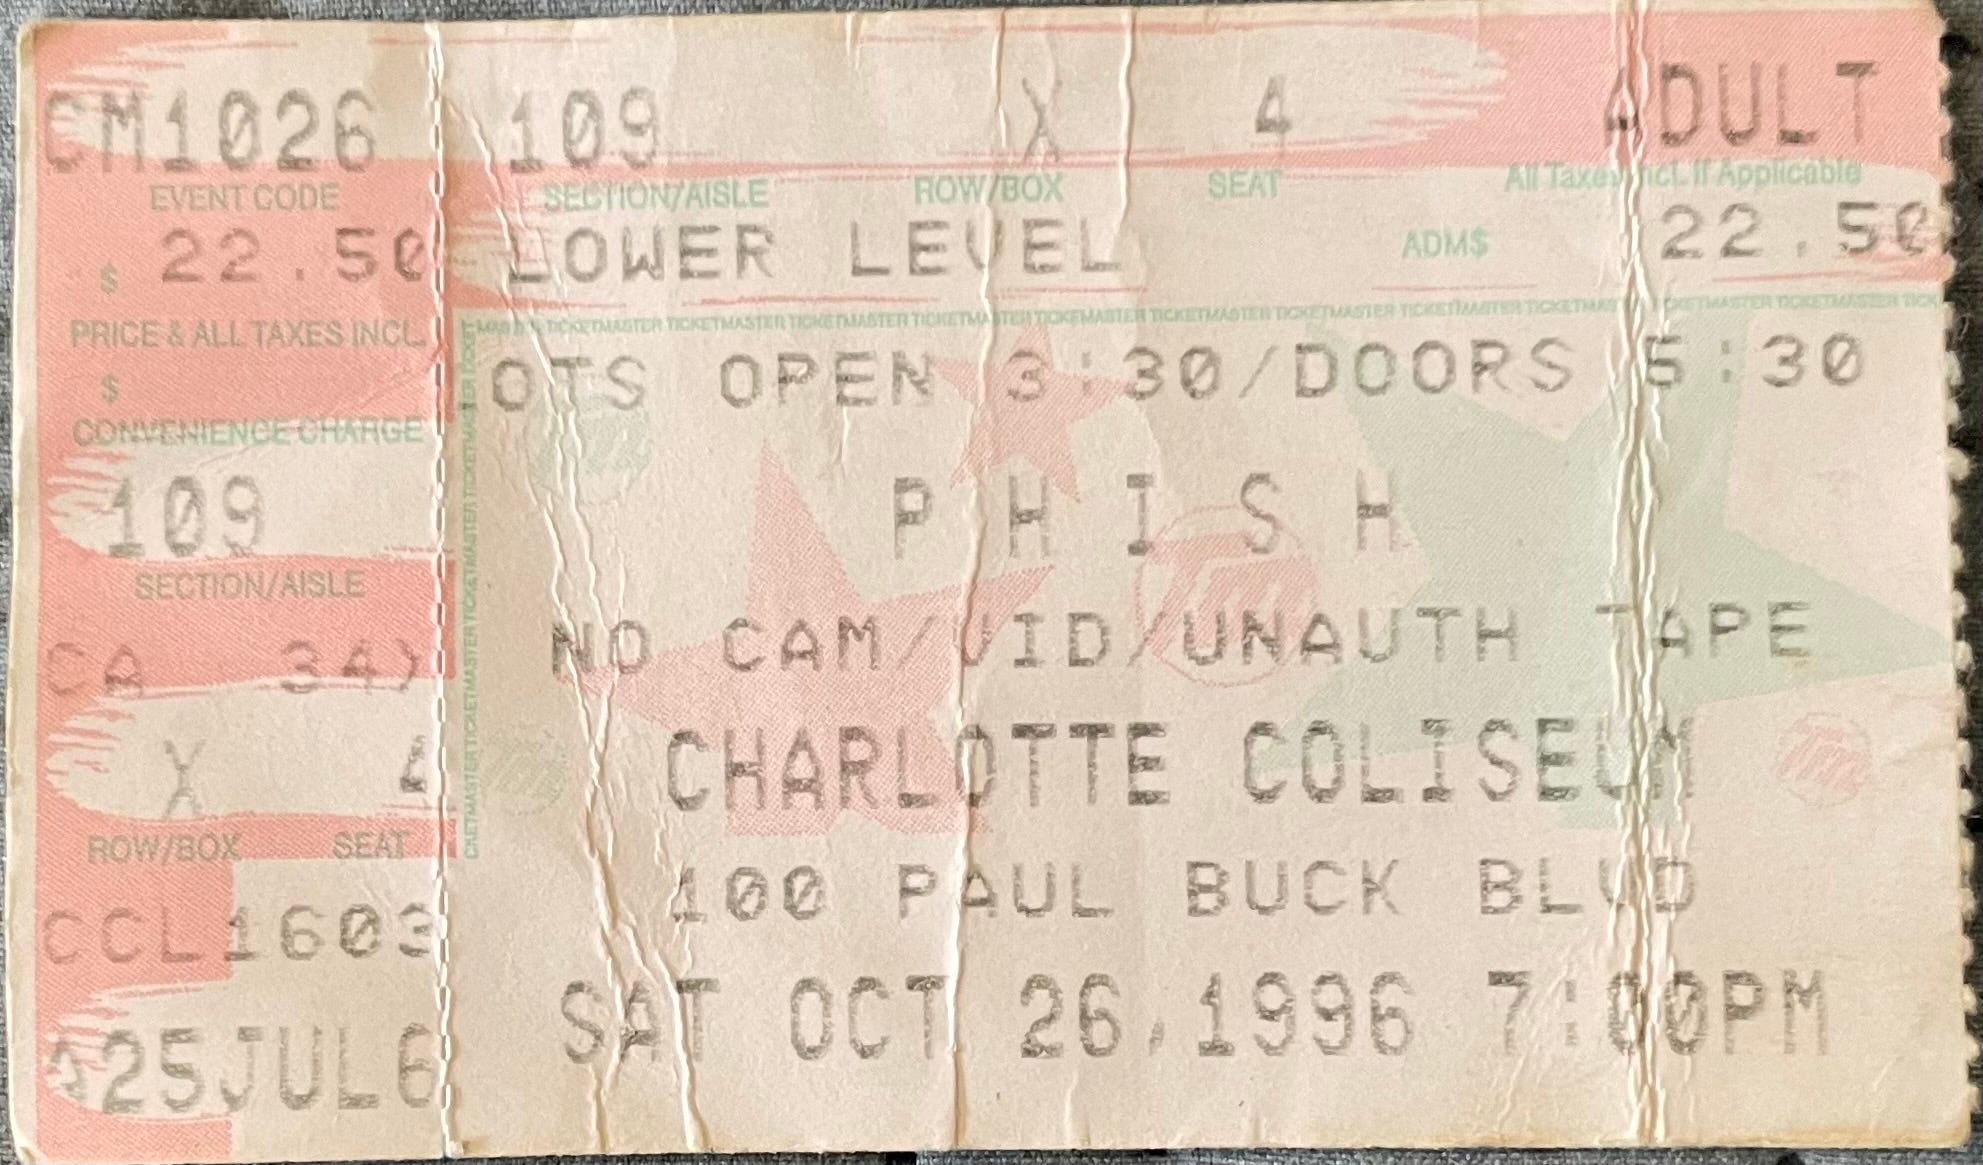 CM1026 109 X 4 ADULT
EVENT CODE SECTION/AISLE ROW/BOX SEAT All Taxes Incl. If Applicable
$ 22.50 LOWER LEVEL ADM$ 22.50
PRICE & ALL TAXES INCL.
TICKETMASTER TICKETMASTER TICKETMASTER TICKETMASTER TICKETMASTER TICKETMASTER TICKETMASTER TICKETMASTER TICKETMASTER TICKETMASTER
$
CONVENIENCE CHARGE
OTS OPEN 3:30/DOORS 5:30
109
SECTION/AISLE
P H I S H
CA 34X
NO CAM/VID/UNAUTH TAPE
X 4
ROW/BOX SEAT
CHARLOTTE COLISEUM
CCL1603
100 PAUL BUCK BLVD
25JUL6
SAT OCT 26,1996 7:00PM